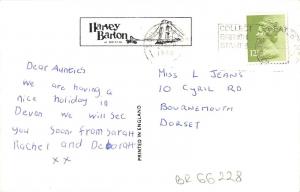 Harvey
Barton
OF BRISTOL
COLLECT
BRITISH
STAMPS
12
Dear Auntie
We are having a
nice holiday in
Devon we will see
you soon from Sarah
Rachel and Deborah
x x
PRINTED IN ENGLAND
MISS L JEANS
10 CYRIL RD
BOURNEMOUTH
DORSET
BR 66 228